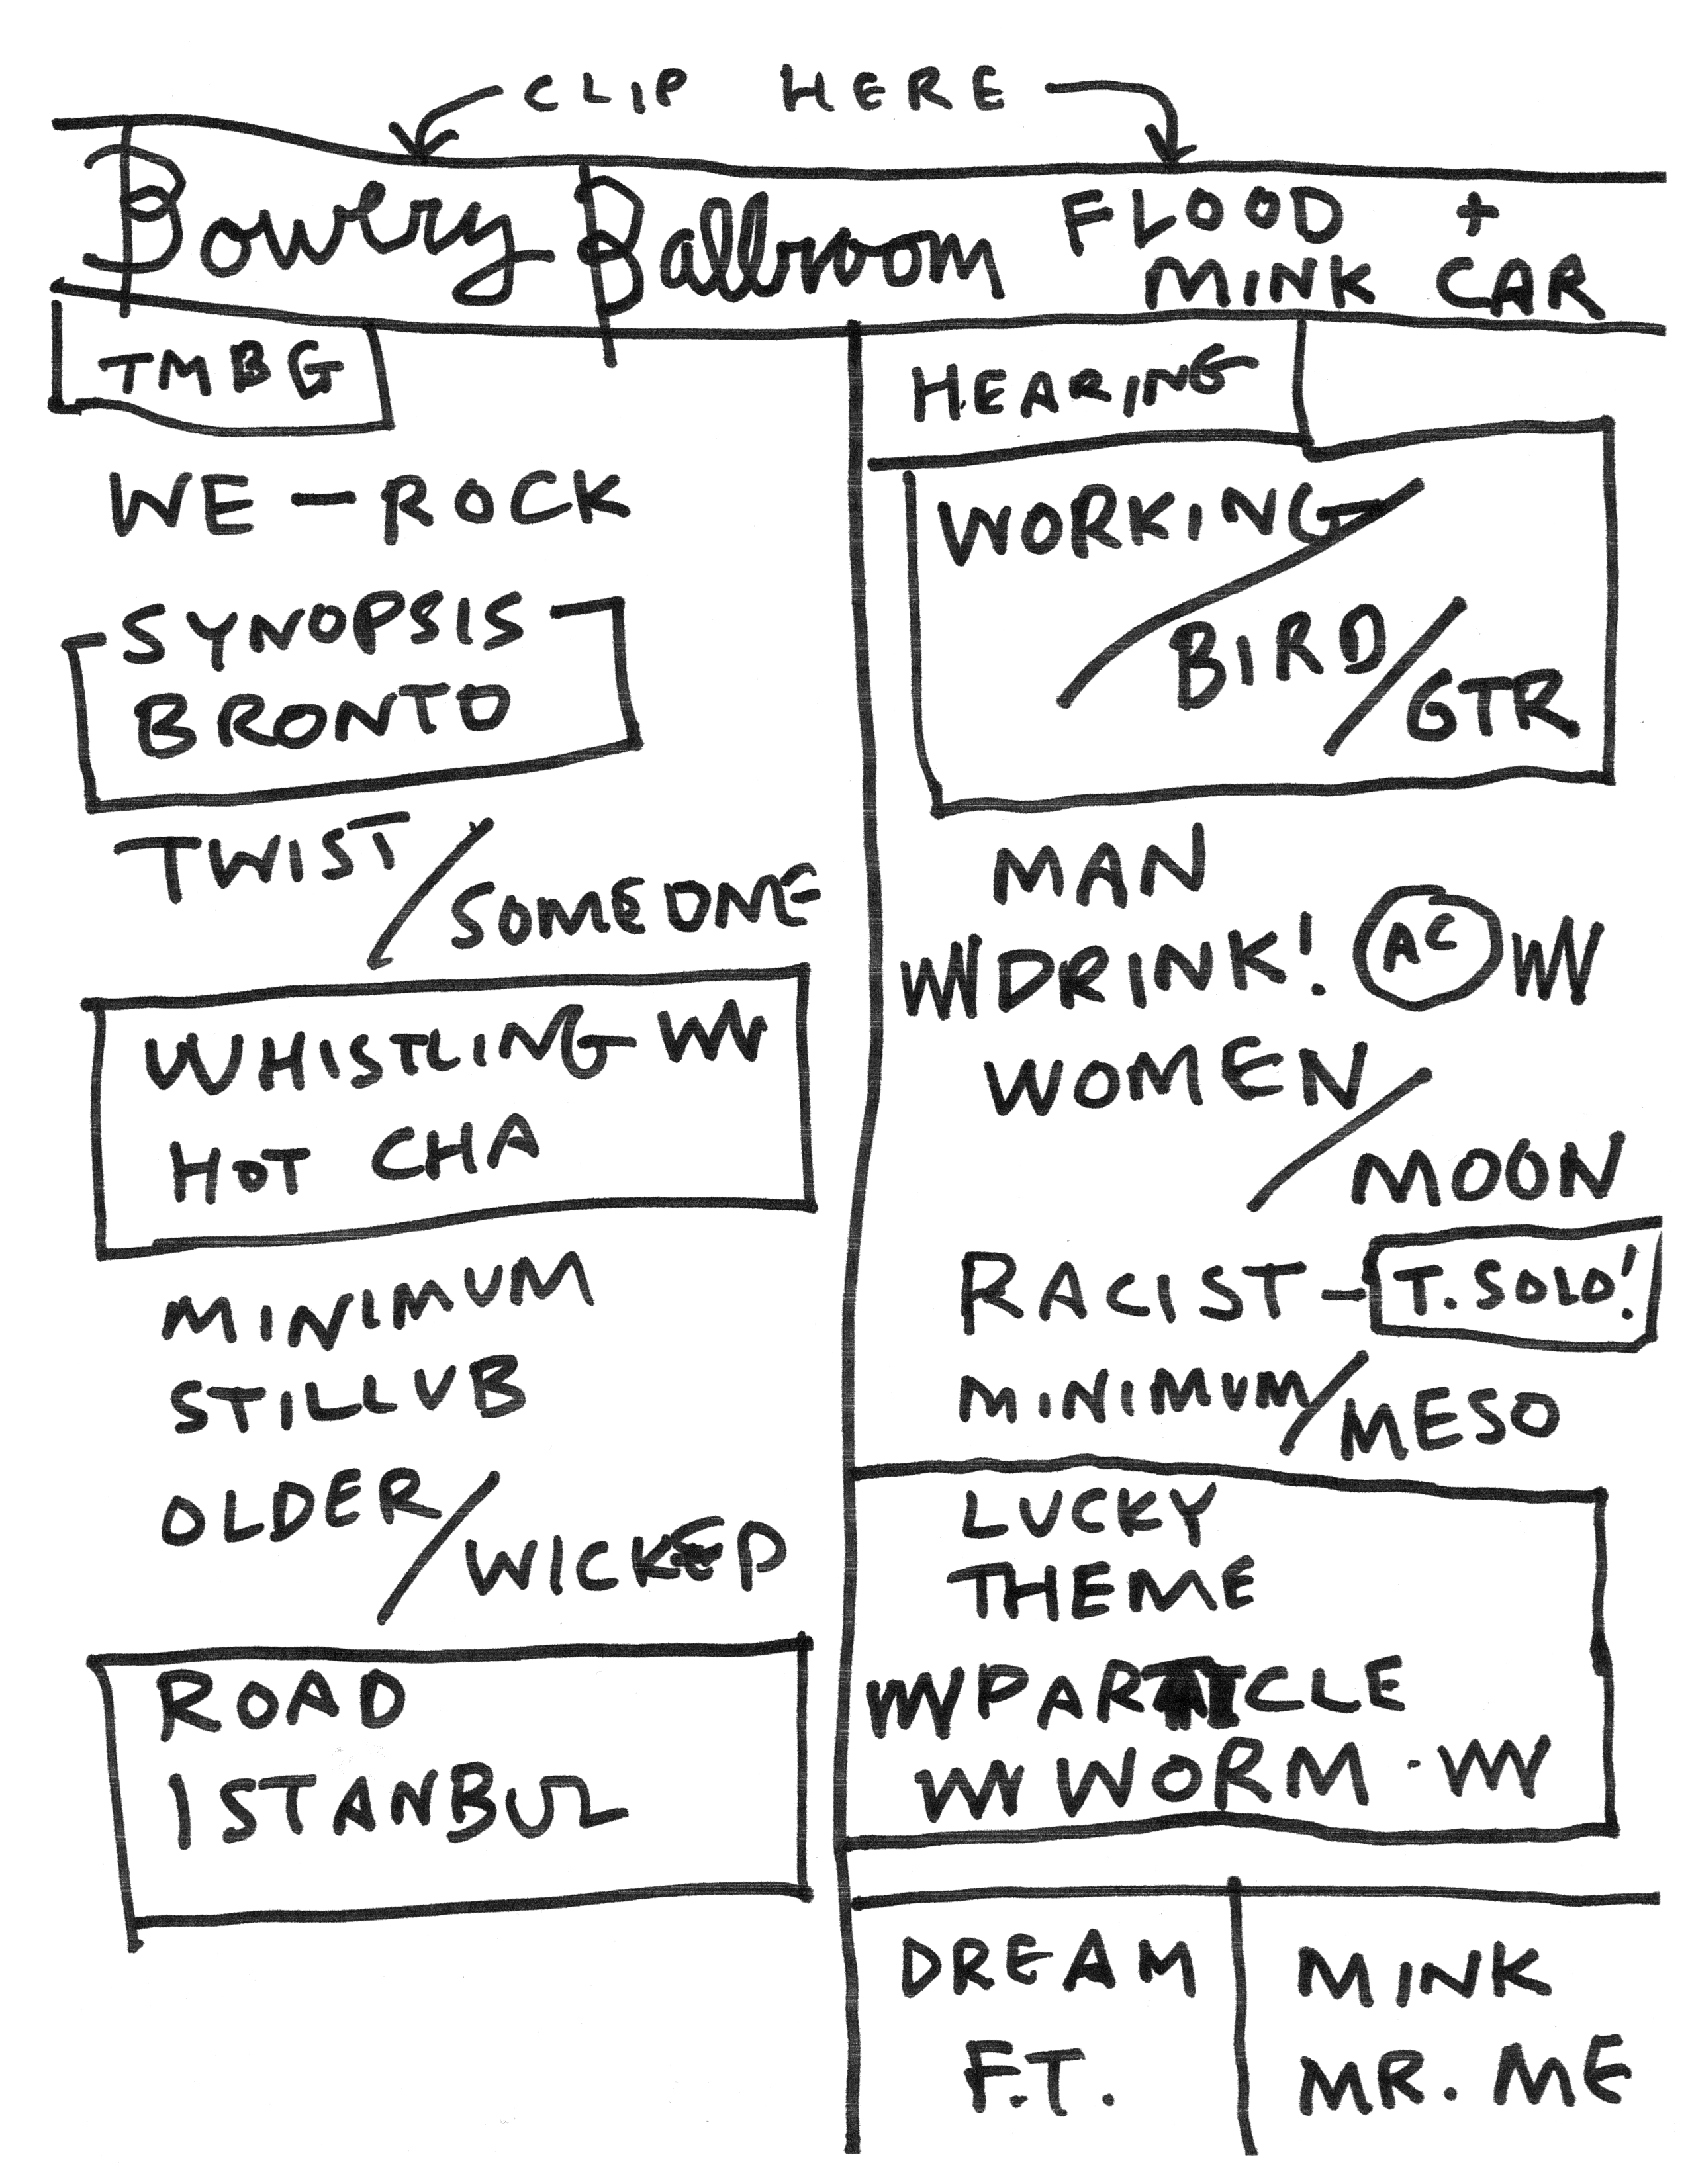 CLIP HERE
Bowery Ballroom FLOOD +
MINK CAR
TMBG
WE - ROCK
SYNOPSIS
BRONTO
TWIST
/SOMEONE
WHISTLING
HOT CHA
MINIMUM
STILLUB
OLDER
/WICKED
ROAD
ISTANBUL
HEARING
WORKING
/BIRD
/GTR
MAN
DRINK! AC
WOMEN
/MOON
RACIST - T. SOLO!
MINIMUM/MESO
LUCKY
THEME
PARTICLE
WORM
DREAM
F.T.
MINK
MR. ME